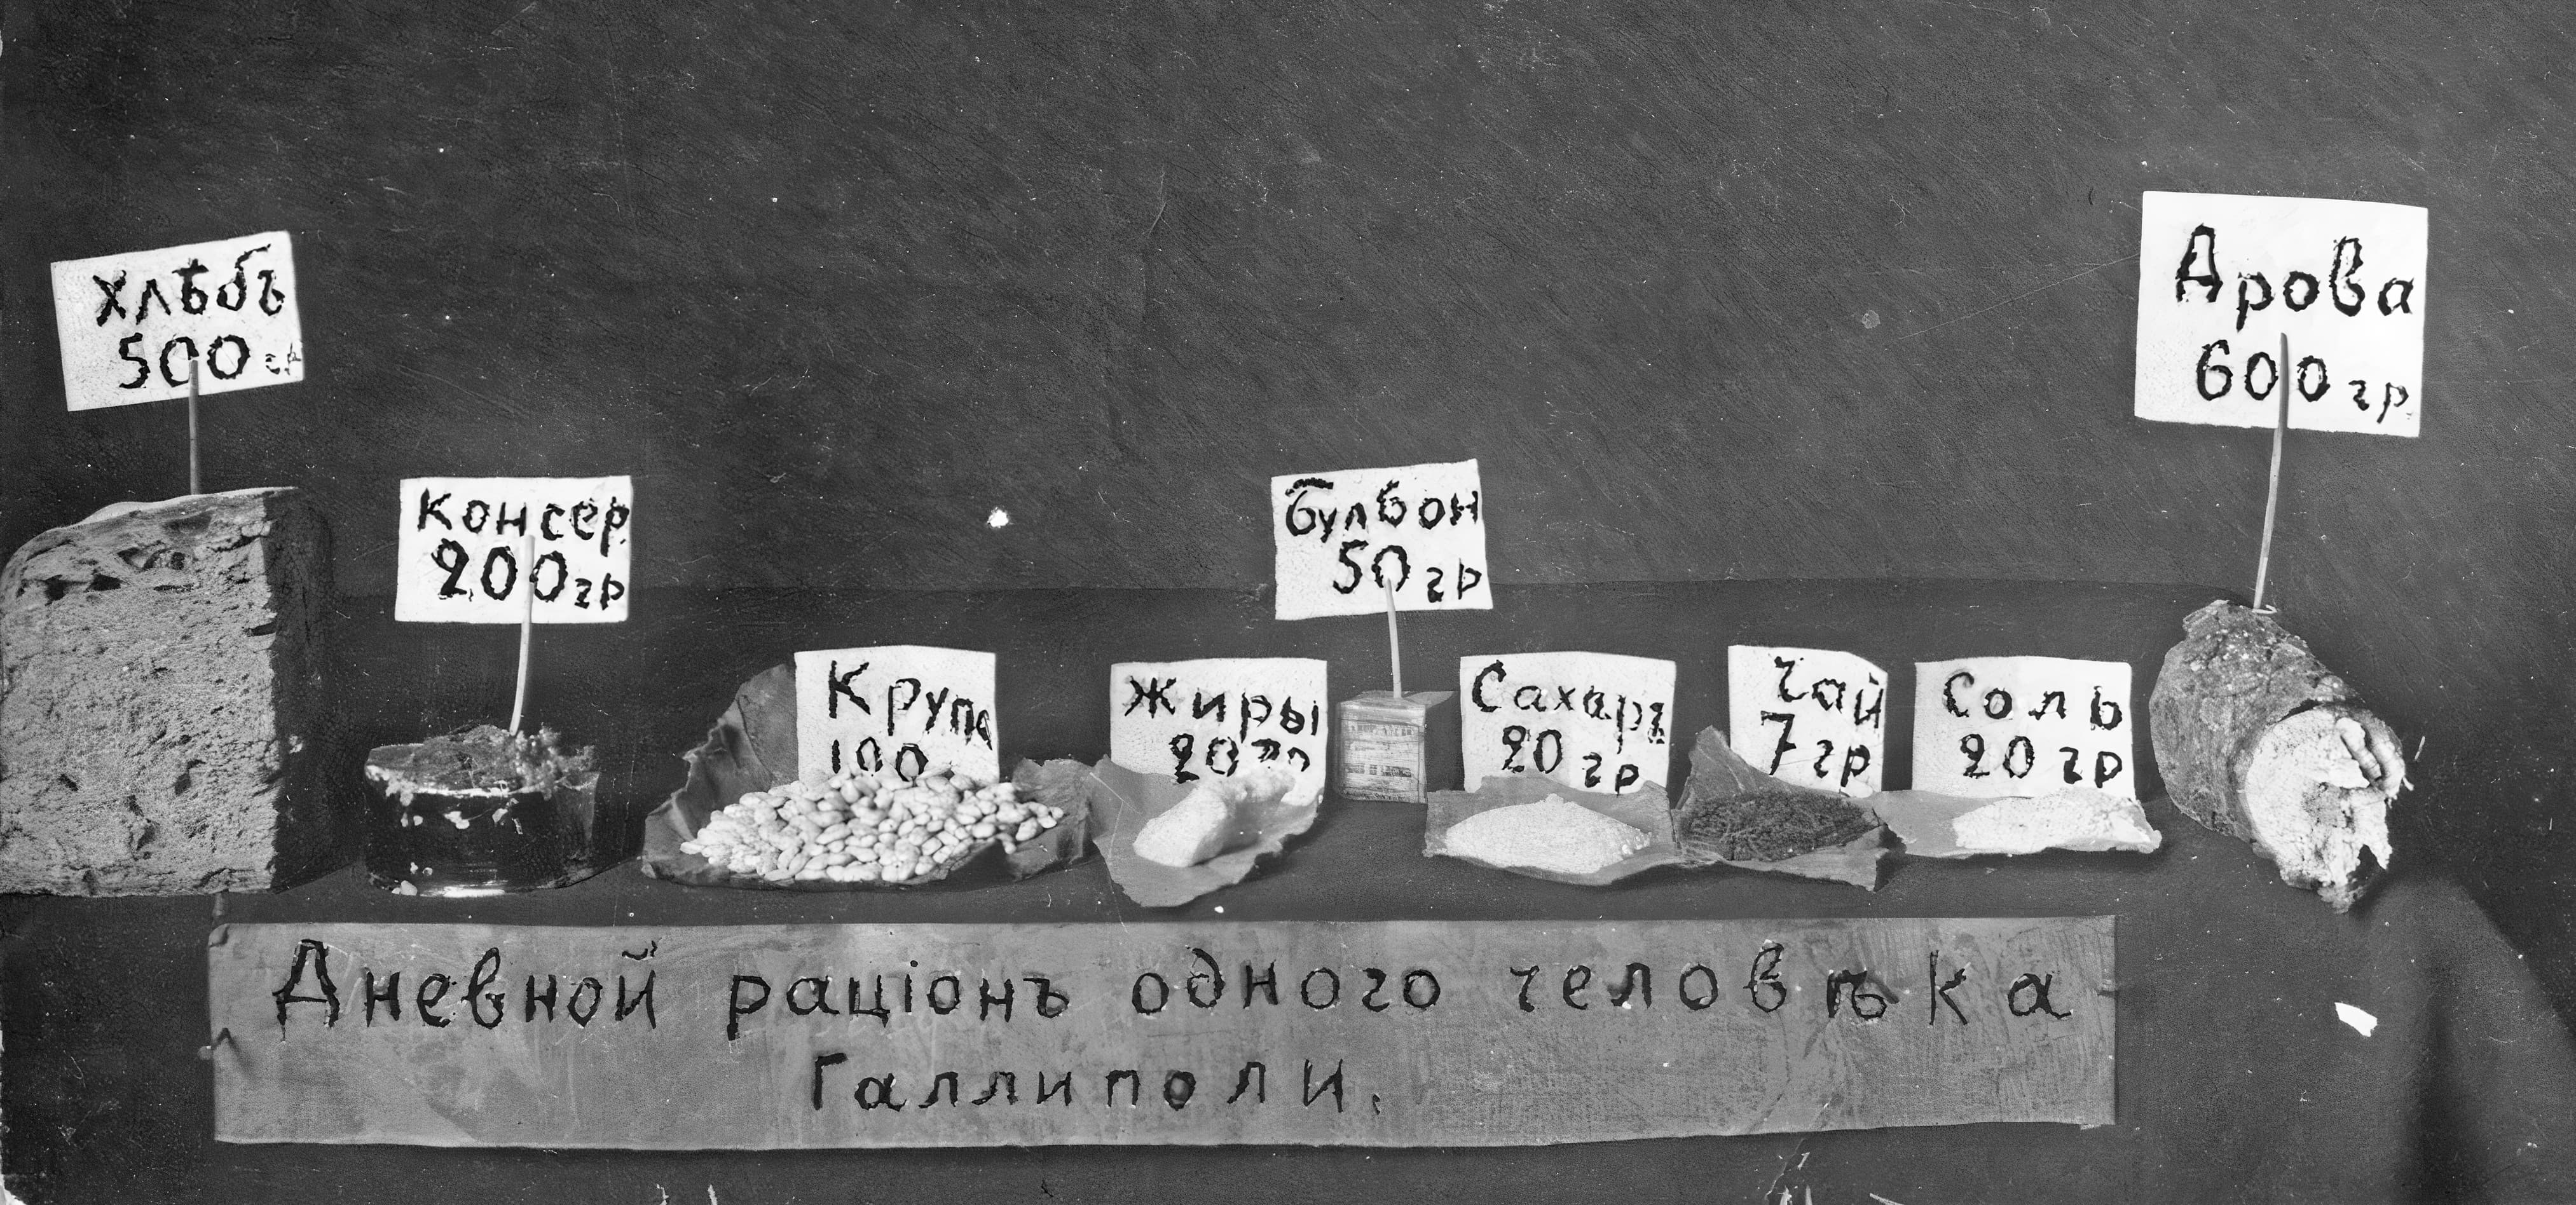 Хлѣбъ
500 гр
Консер
200 гр
Крупа
100
Жиры
20 гр
Булбон
50 гр
Сахаръ
20 гр
Чай
7 гр
Соль
20 гр
Дрова
600 гр
Дневной раціонъ одного человѣка
Галлиполи.